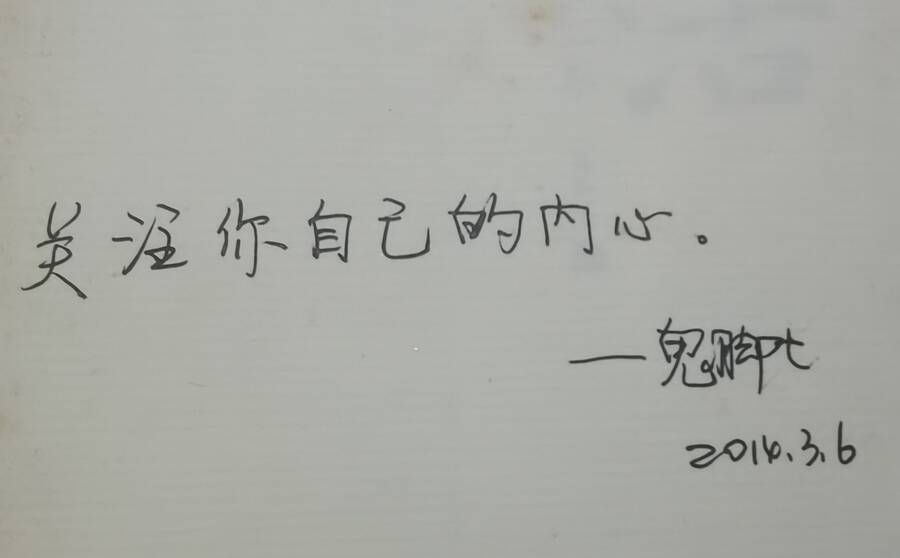 关注你自己的内心。
——鬼脚七
2014.3.6